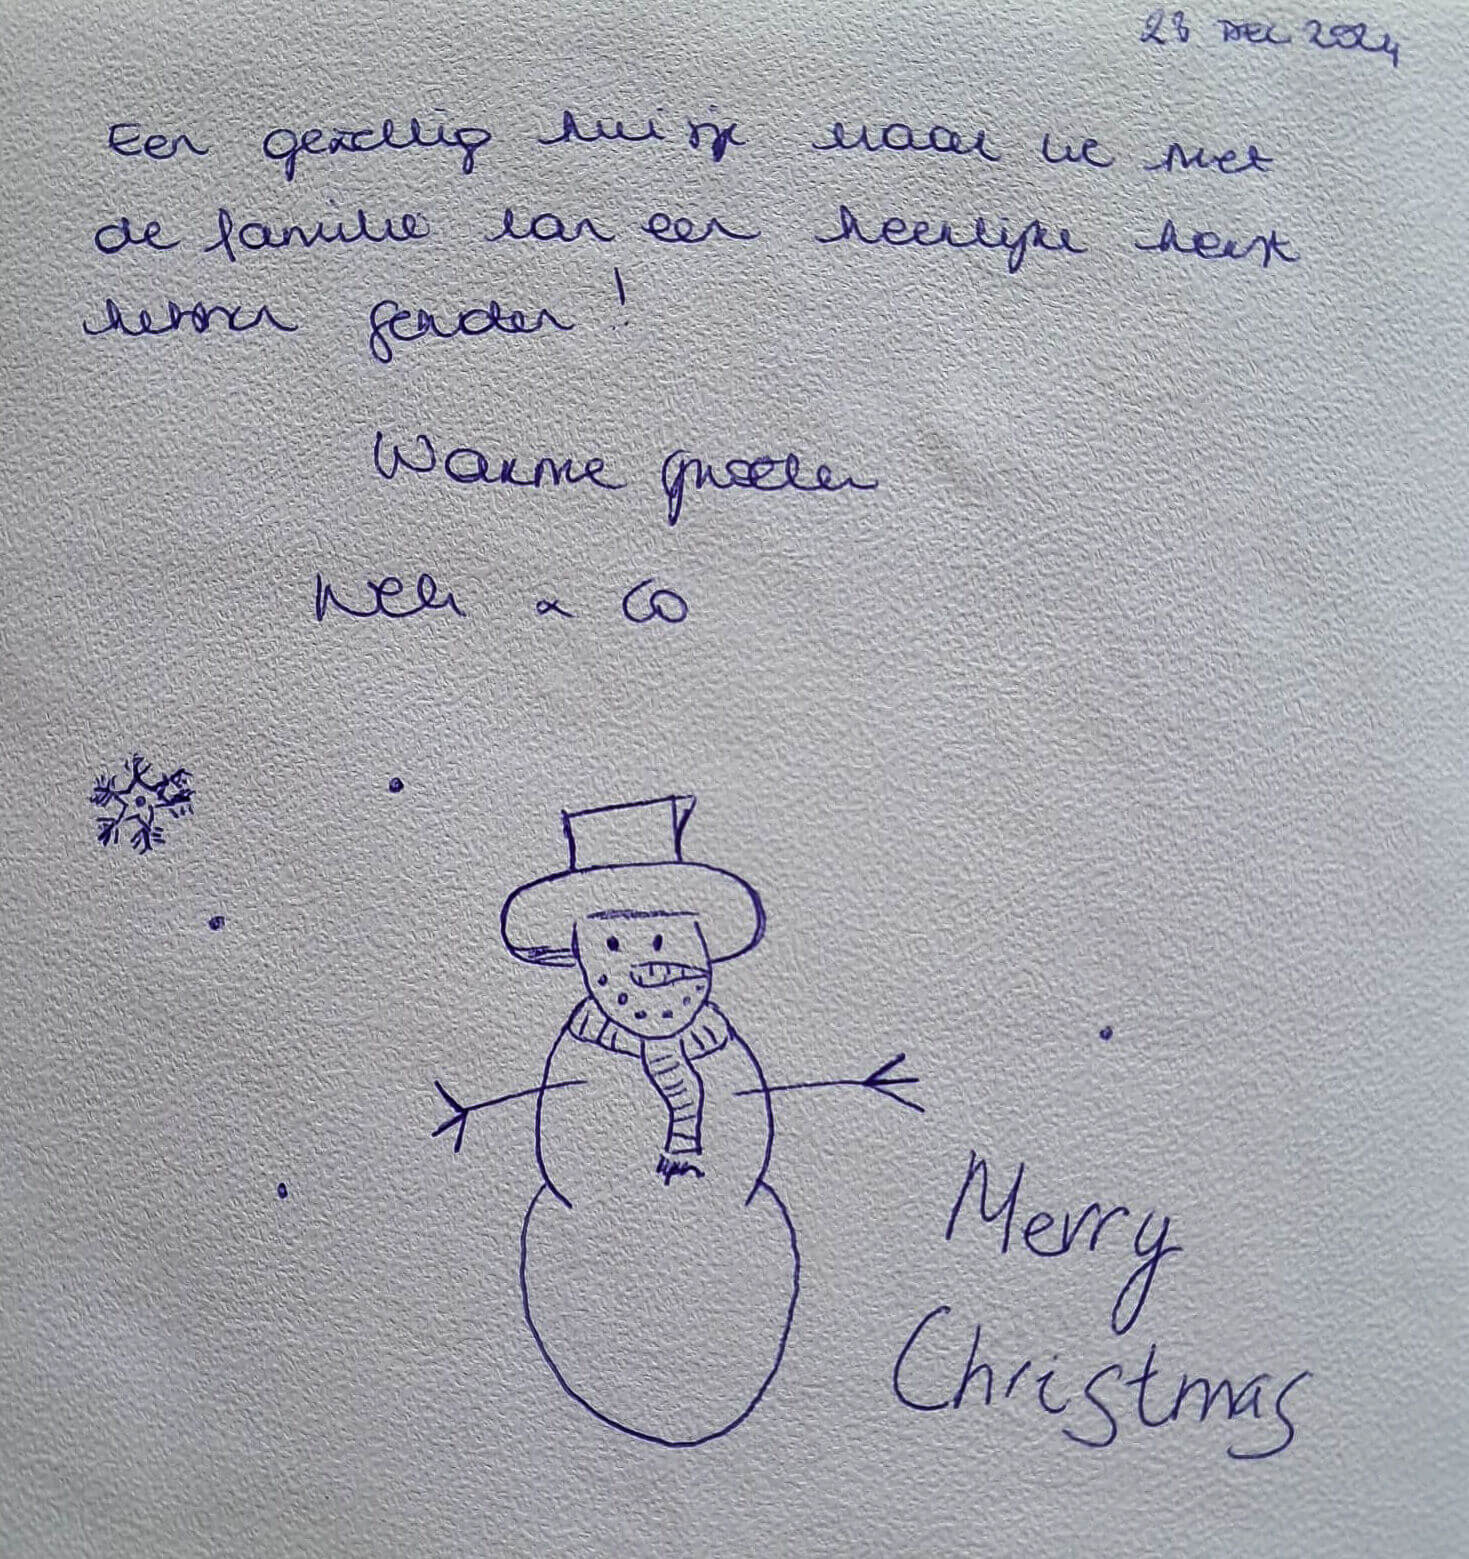 28 DEC 2024
Een gezellig huisje waar we met
de familie van een heerlijke kerst
hebben genoten!
Warme groeten
Nele & Co
Merry
Christmas